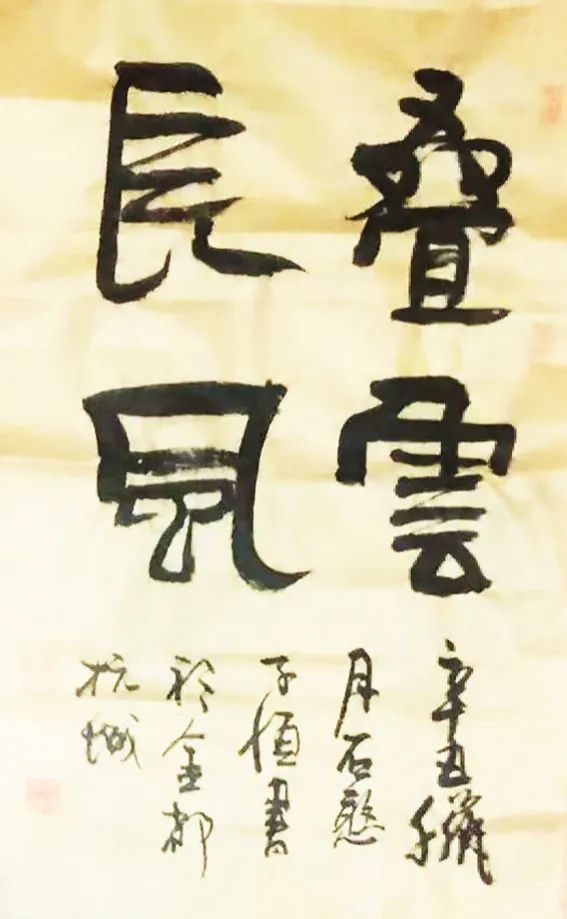 疊雲
長風
辛丑臘
月石愨
子恒書
於金都
杭城